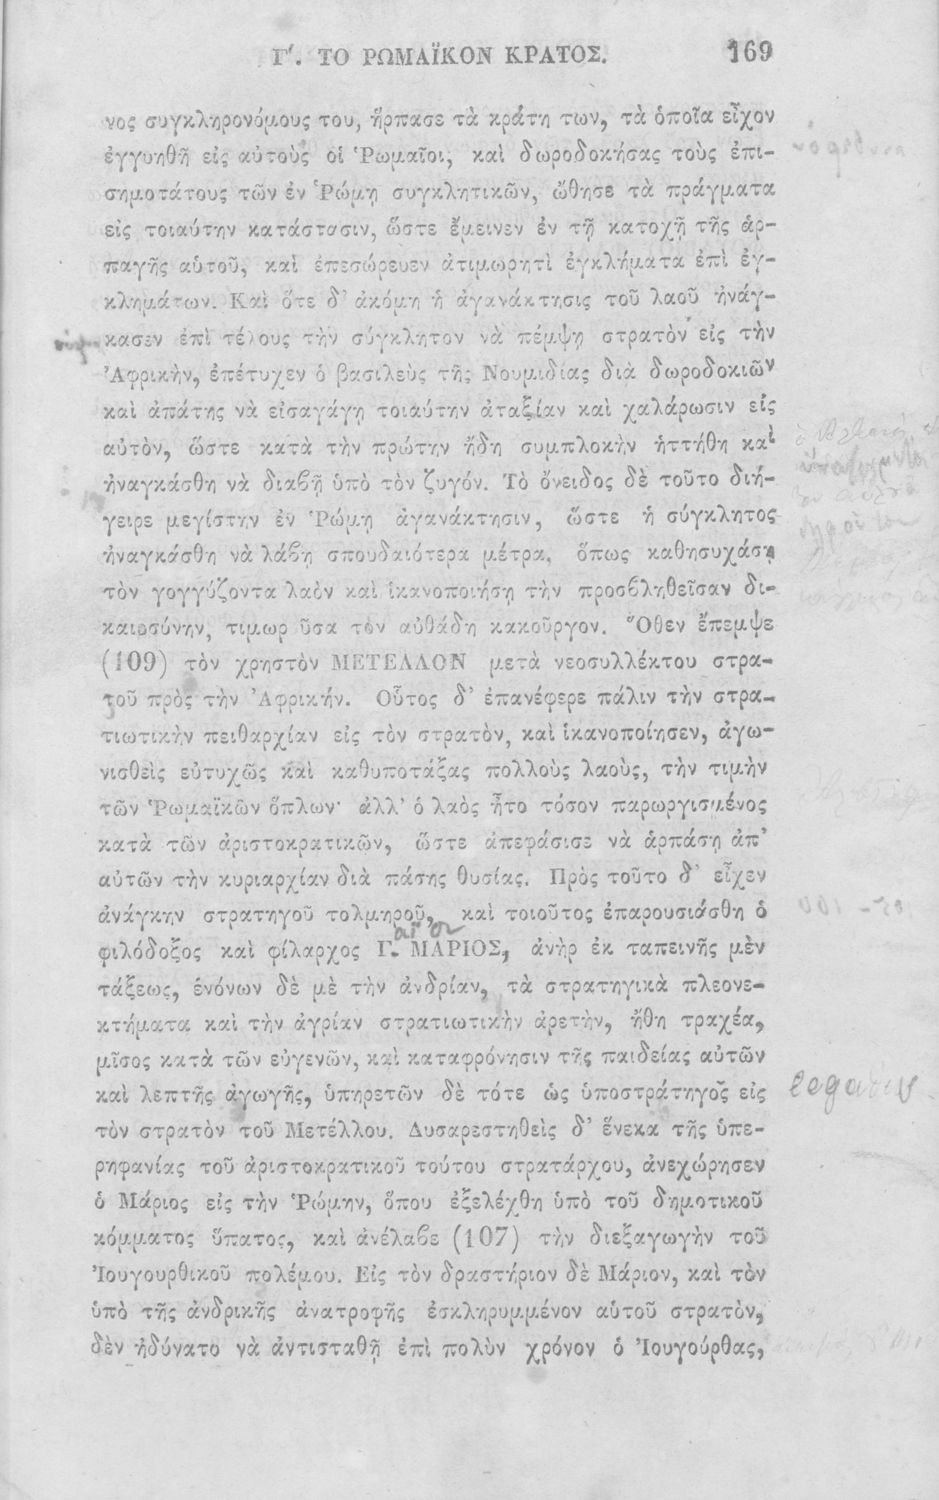 Γ΄. ΤΟ ΡΩΜΑΪΚΟΝ ΚΡΑΤΟΣ. 169
νος συγκληρονόμους του, ἥρπασε τὰ κράτη των, τὰ ὁποῖα εἶχον
ἐγγυηθῆ εἰς αὐτοὺς οἱ Ῥωμαῖοι, καὶ δωροδοκήσας τοὺς ἐπι-
σημοτάτους τῶν ἐν Ῥώμῃ συγκλητικῶν, ὤθησε τὰ πράγματα
εἰς τοιαύτην κατάστασιν, ὥστε ἔμεινεν ἐν τῇ κατοχῇ τῆς ἁρ-
παγῆς αὑτοῦ, καὶ ἐπεσώρευεν ἀτιμωρητὶ ἐγκλήματα ἐπὶ ἐγ-
κλημάτων. Καὶ ὅτε δ' ἀκόμη ἡ ἀγανάκτησις τοῦ λαοῦ ἠνάγ-
κασεν ἐπὶ τέλους τὴν σύγκλητον νὰ πέμψῃ στρατὸν εἰς τὴν
Ἀφρικὴν, ἐπέτυχεν ὁ βασιλεὺς τῆς Νουμιδίας διὰ δωροδοκιῶν
καὶ ἀπάτης νὰ εἰσαγάγῃ τοιαύτην ἀταξίαν καὶ χαλάρωσιν εἰς
αὐτὸν, ὥστε κατὰ τὴν πρώτην ἤδη συμπλοκὴν ἡττήθη καὶ
ἠναγκάσθη νὰ διαβῇ ὑπὸ τὸν ζυγόν. Τὸ ὄνειδος δὲ τοῦτο διή-
γειρε μεγίστην ἐν Ῥώμῃ ἀγανάκτησιν, ὥστε ἡ σύγκλητος
ἠναγκάσθη νὰ λάβῃ σπουδαιότερα μέτρα, ὅπως καθησυχάσῃ
τὸν γογγύζοντα λαὸν καὶ ἱκανοποιήσῃ τὴν προσβληθεῖσαν δι-
καιοσύνην, τιμωρ ῦσα τὸν αὐθάδη κακοῦργον. Ὅθεν ἔπεμψε
(109) τὸν χρηστὸν ΜΕΤΕΛΛΟΝ μετὰ νεοσυλλέκτου στρα-
τοῦ πρὸς τὴν Ἀφρικήν. Οὗτος δ' ἐπανέφερε πάλιν τὴν στρα-
τιωτικὴν πειθαρχίαν εἰς τὸν στρατὸν, καὶ ἱκανοποίησεν, ἀγω-
νισθεὶς εὐτυχῶς καὶ καθυποτάξας πολλοὺς λαοὺς, τὴν τιμὴν
τῶν Ῥωμαϊκῶν ὅπλων· ἀλλ' ὁ λαὸς ἦτο τόσον παρωργισμένος
κατὰ τῶν ἀριστοκρατικῶν, ὥστε ἀπεφάσισε νὰ ἁρπάσῃ ἀπ'
αὐτῶν τὴν κυριαρχίαν διὰ πάσης θυσίας. Πρὸς τοῦτο δ' εἶχεν
ἀνάγκην στρατηγοῦ τολμηροῦ, καὶ τοιοῦτος ἐπαρουσιάσθη ὁ
φιλόδοξος καὶ φίλαρχος Γ. ΜΑΡΙΟΣ, ἀνὴρ ἐκ ταπεινῆς μὲν
τάξεως, ἑνόνων δὲ μὲ τὴν ἀνδρίαν, τὰ στρατηγικὰ πλεονε-
κτήματα καὶ τὴν ἀγρίαν στρατιωτικὴν ἀρετὴν, ἤθη τραχέα,
μῖσος κατὰ τῶν εὐγενῶν, καὶ καταφρόνησιν τῆς παιδείας αὐτῶν
καὶ λεπτῆς ἀγωγῆς, ὑπηρετῶν δὲ τότε ὡς ὑποστράτηγος εἰς
τὸν στρατὸν τοῦ Μετέλλου. Δυσαρεστηθεὶς δ' ἕνεκα τῆς ὑπε-
ρηφανίας τοῦ ἀριστοκρατικοῦ τούτου στρατάρχου, ἀνεχώρησεν
ὁ Μάριος εἰς τὴν Ῥώμην, ὅπου ἐξελέχθη ὑπὸ τοῦ δημοτικοῦ
κόμματος ὕπατος, καὶ ἀνέλαβε (107) τὴν διεξαγωγὴν τοῦ
Ἰουγουρθικοῦ πολέμου. Εἰς τὸν δραστήριον δὲ Μάριον, καὶ τὸν
ὑπὸ τῆς ἀνδρικῆς ἀνατροφῆς ἐσκληρυμμένον αὑτοῦ στρατὸν,
δὲν ἠδύνατο νὰ ἀντισταθῇ ἐπὶ πολὺν χρόνον ὁ Ἰουγούρθας,
legatus